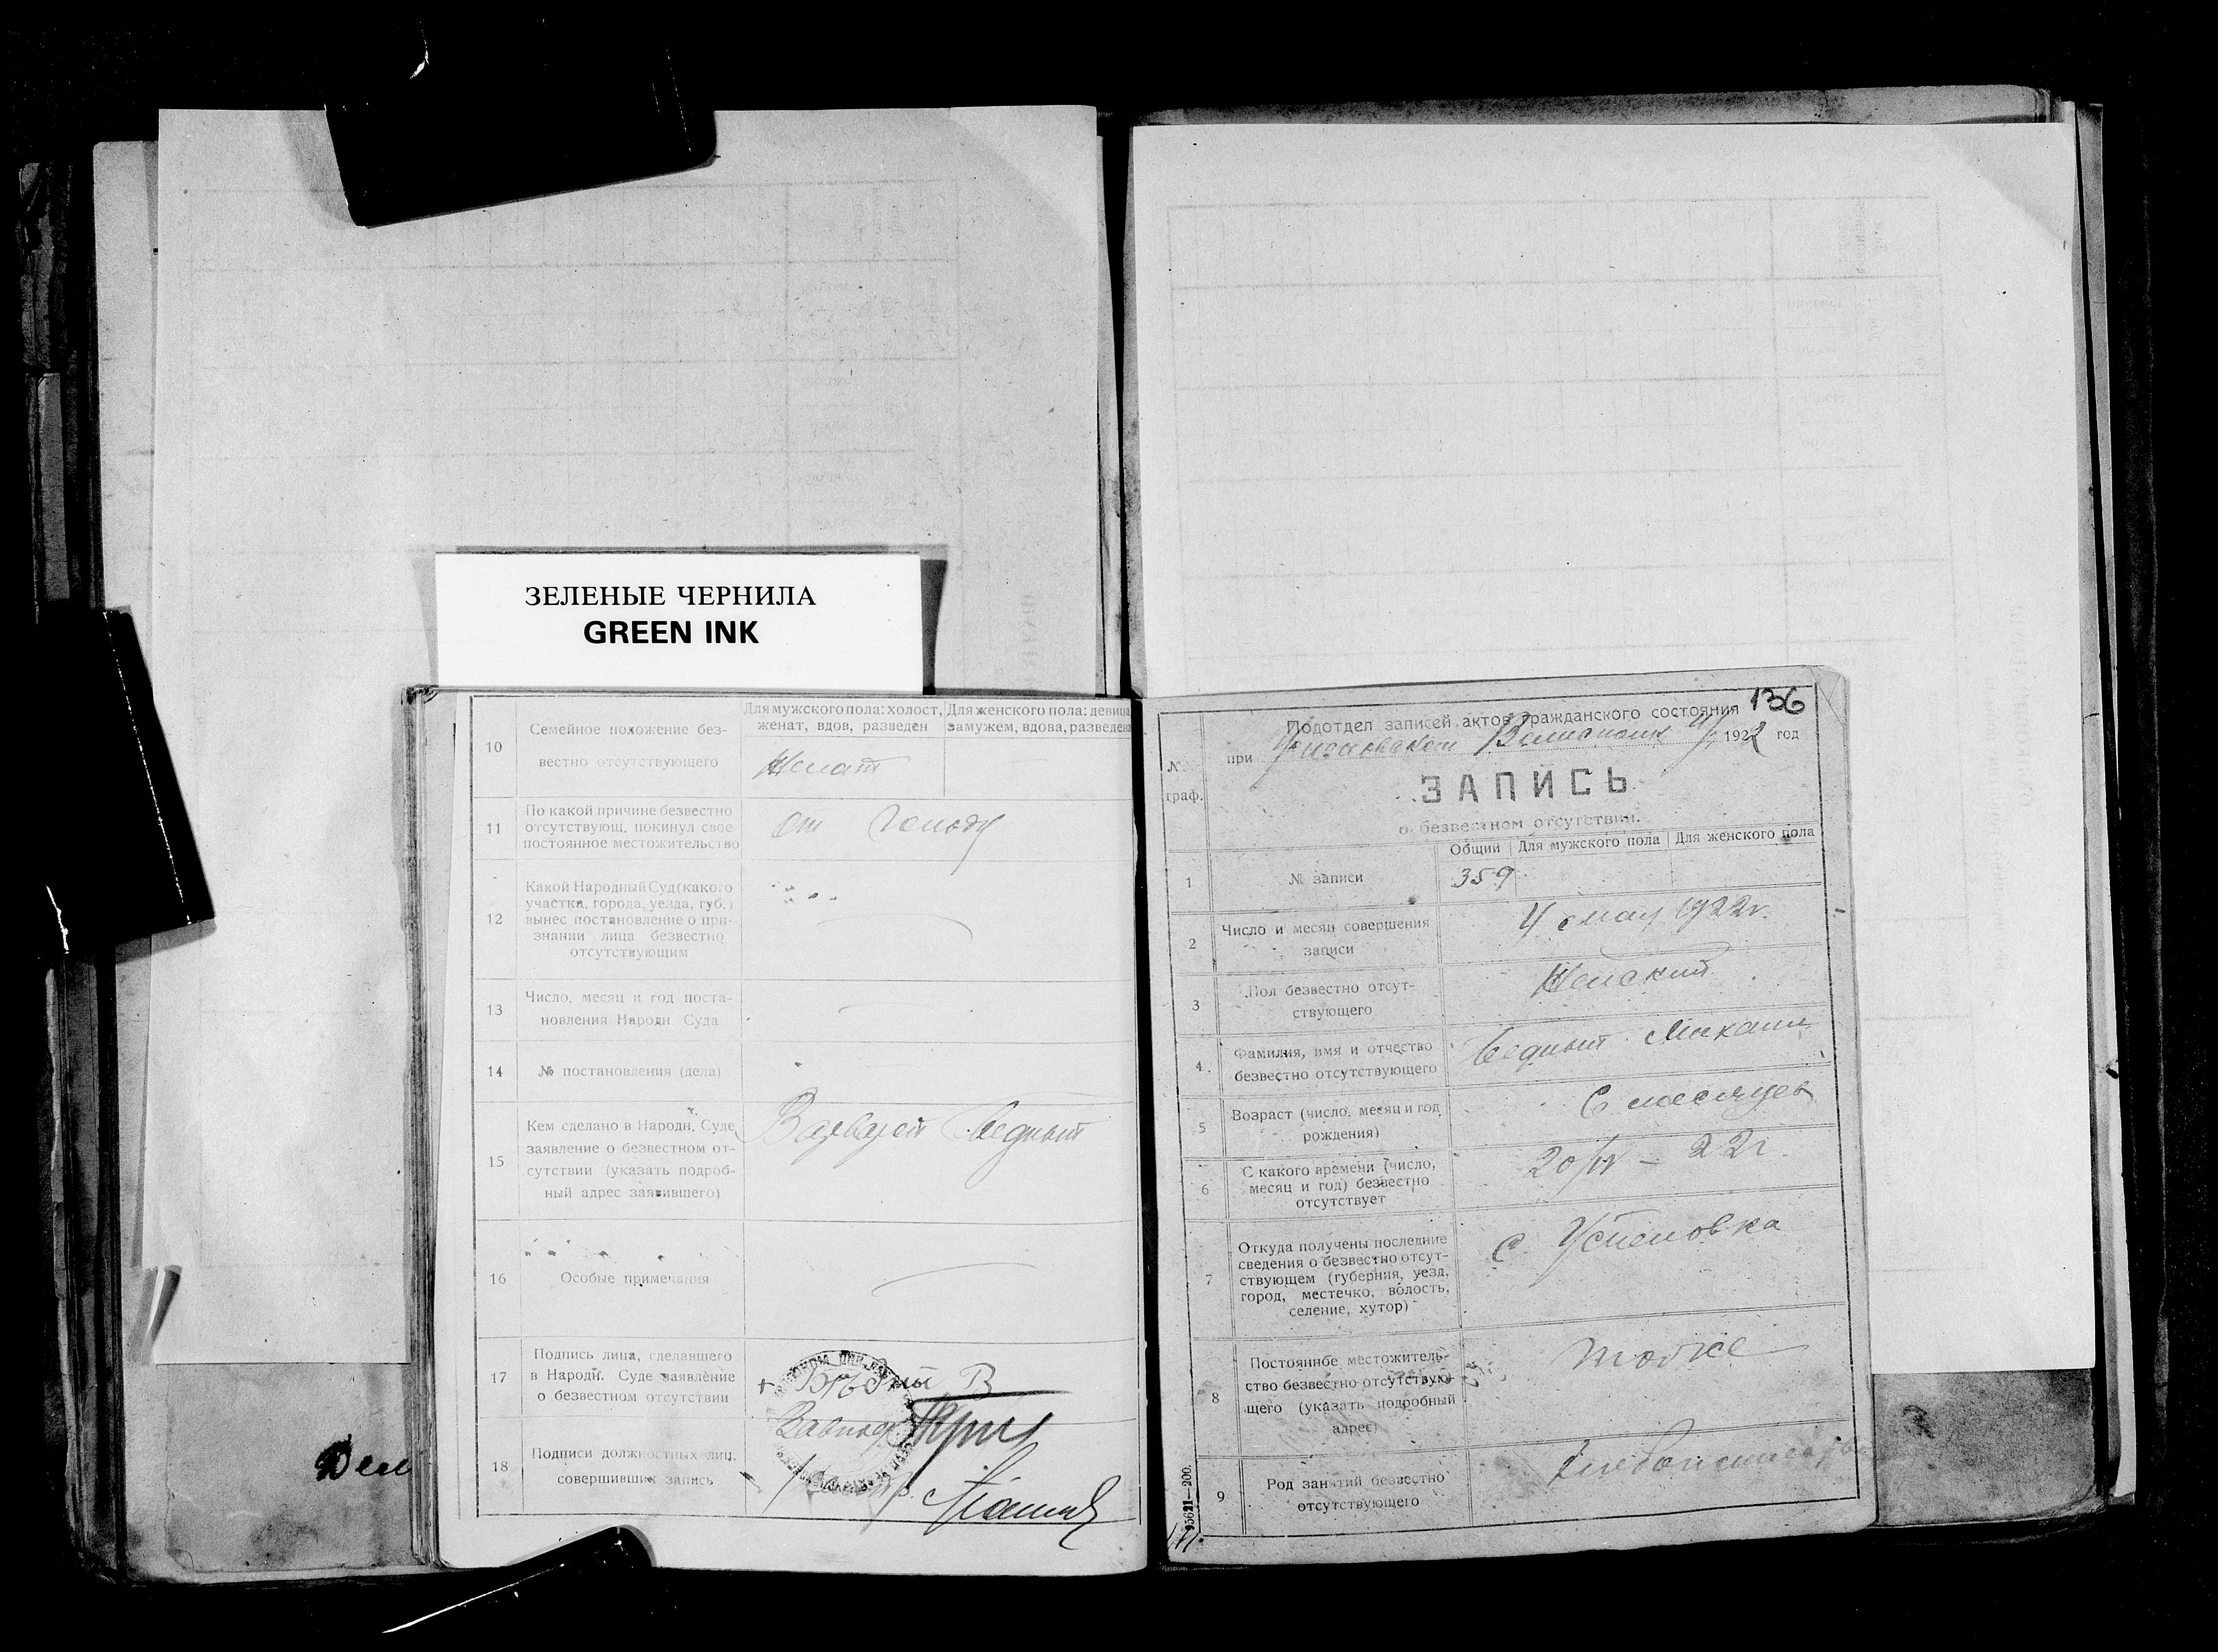 ЗЕЛЕНЫЕ ЧЕРНИЛА
GREEN INK
10
Семейное положение без-
вестно отсутствующего
Для мужского пола: холост,
женат, вдов, разведен
Для женского пола: девица,
замужем, вдова, разведена
Женат
11
По какой причине безвестно
отсутствующ. покинул свое
постоянное местожительство
От голоду
12
Какой Народный Суд (какого
участка, города, уезда, губ.)
вынес постановление о при-
знании лица безвестно
отсутствующим
13
Число, месяц и год поста-
новления Народн. Суда
14
№ постановления (дела)
15
Кем сделано в Народн. Суде
заявление о безвестном от-
сутствии (указать подроб-
ный адрес заявившего)
16
Особые примечания
17
Подпись лица, сделавшего
в Народн. Суде заявление
о безвестном отсутствии
18
Подписи должностных лиц,
совершивших запись
136
Подотдел записей актов гражданского состояния
при
1922 год
№
граф.
ЗАПИСЬ
о безвестном отсутствии.
Общий
Для мужского пола
Для женского пола
1
№ записи
359
2
Число и месяц совершения
записи
4 мая 1922г.
3
Пол безвестно отсут-
ствующего
Женский
4
Фамилия, имя и отчество
безвестно отсутствующего
Бедный Михаил
5
Возраст (число, месяц и год
рождения)
6 месяцев
6
С какого времени (число,
месяц и год) безвестно
отсутствует
20/IV – 22г.
7
Откуда получены последние
сведения о безвестно отсут-
ствующем (губерния, уезд,
город, местечко, волость,
селение, хутор)
с. Успеновка
8
Постоянное местожитель-
ство безвестно отсутствую-
щего (указать подробный
адрес)
тоже
9
Род занятий безвестно
отсутствующего
95621—200.